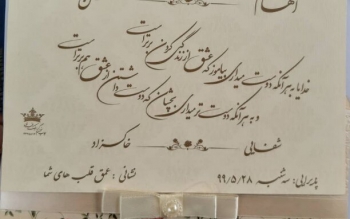 الهام
خدایا به هر آنکه دوست میداری بیاموز که عشق از زندگی کردن برتر است
و به هر آنکه دوست تر میداری بچشان که دوست داشتن از عشق هم برتر است
شفایی
خاکزاد
پذیرایی: سه شنبه ۹۹/۵/۲۸
نشانی: عمق قلب های شما